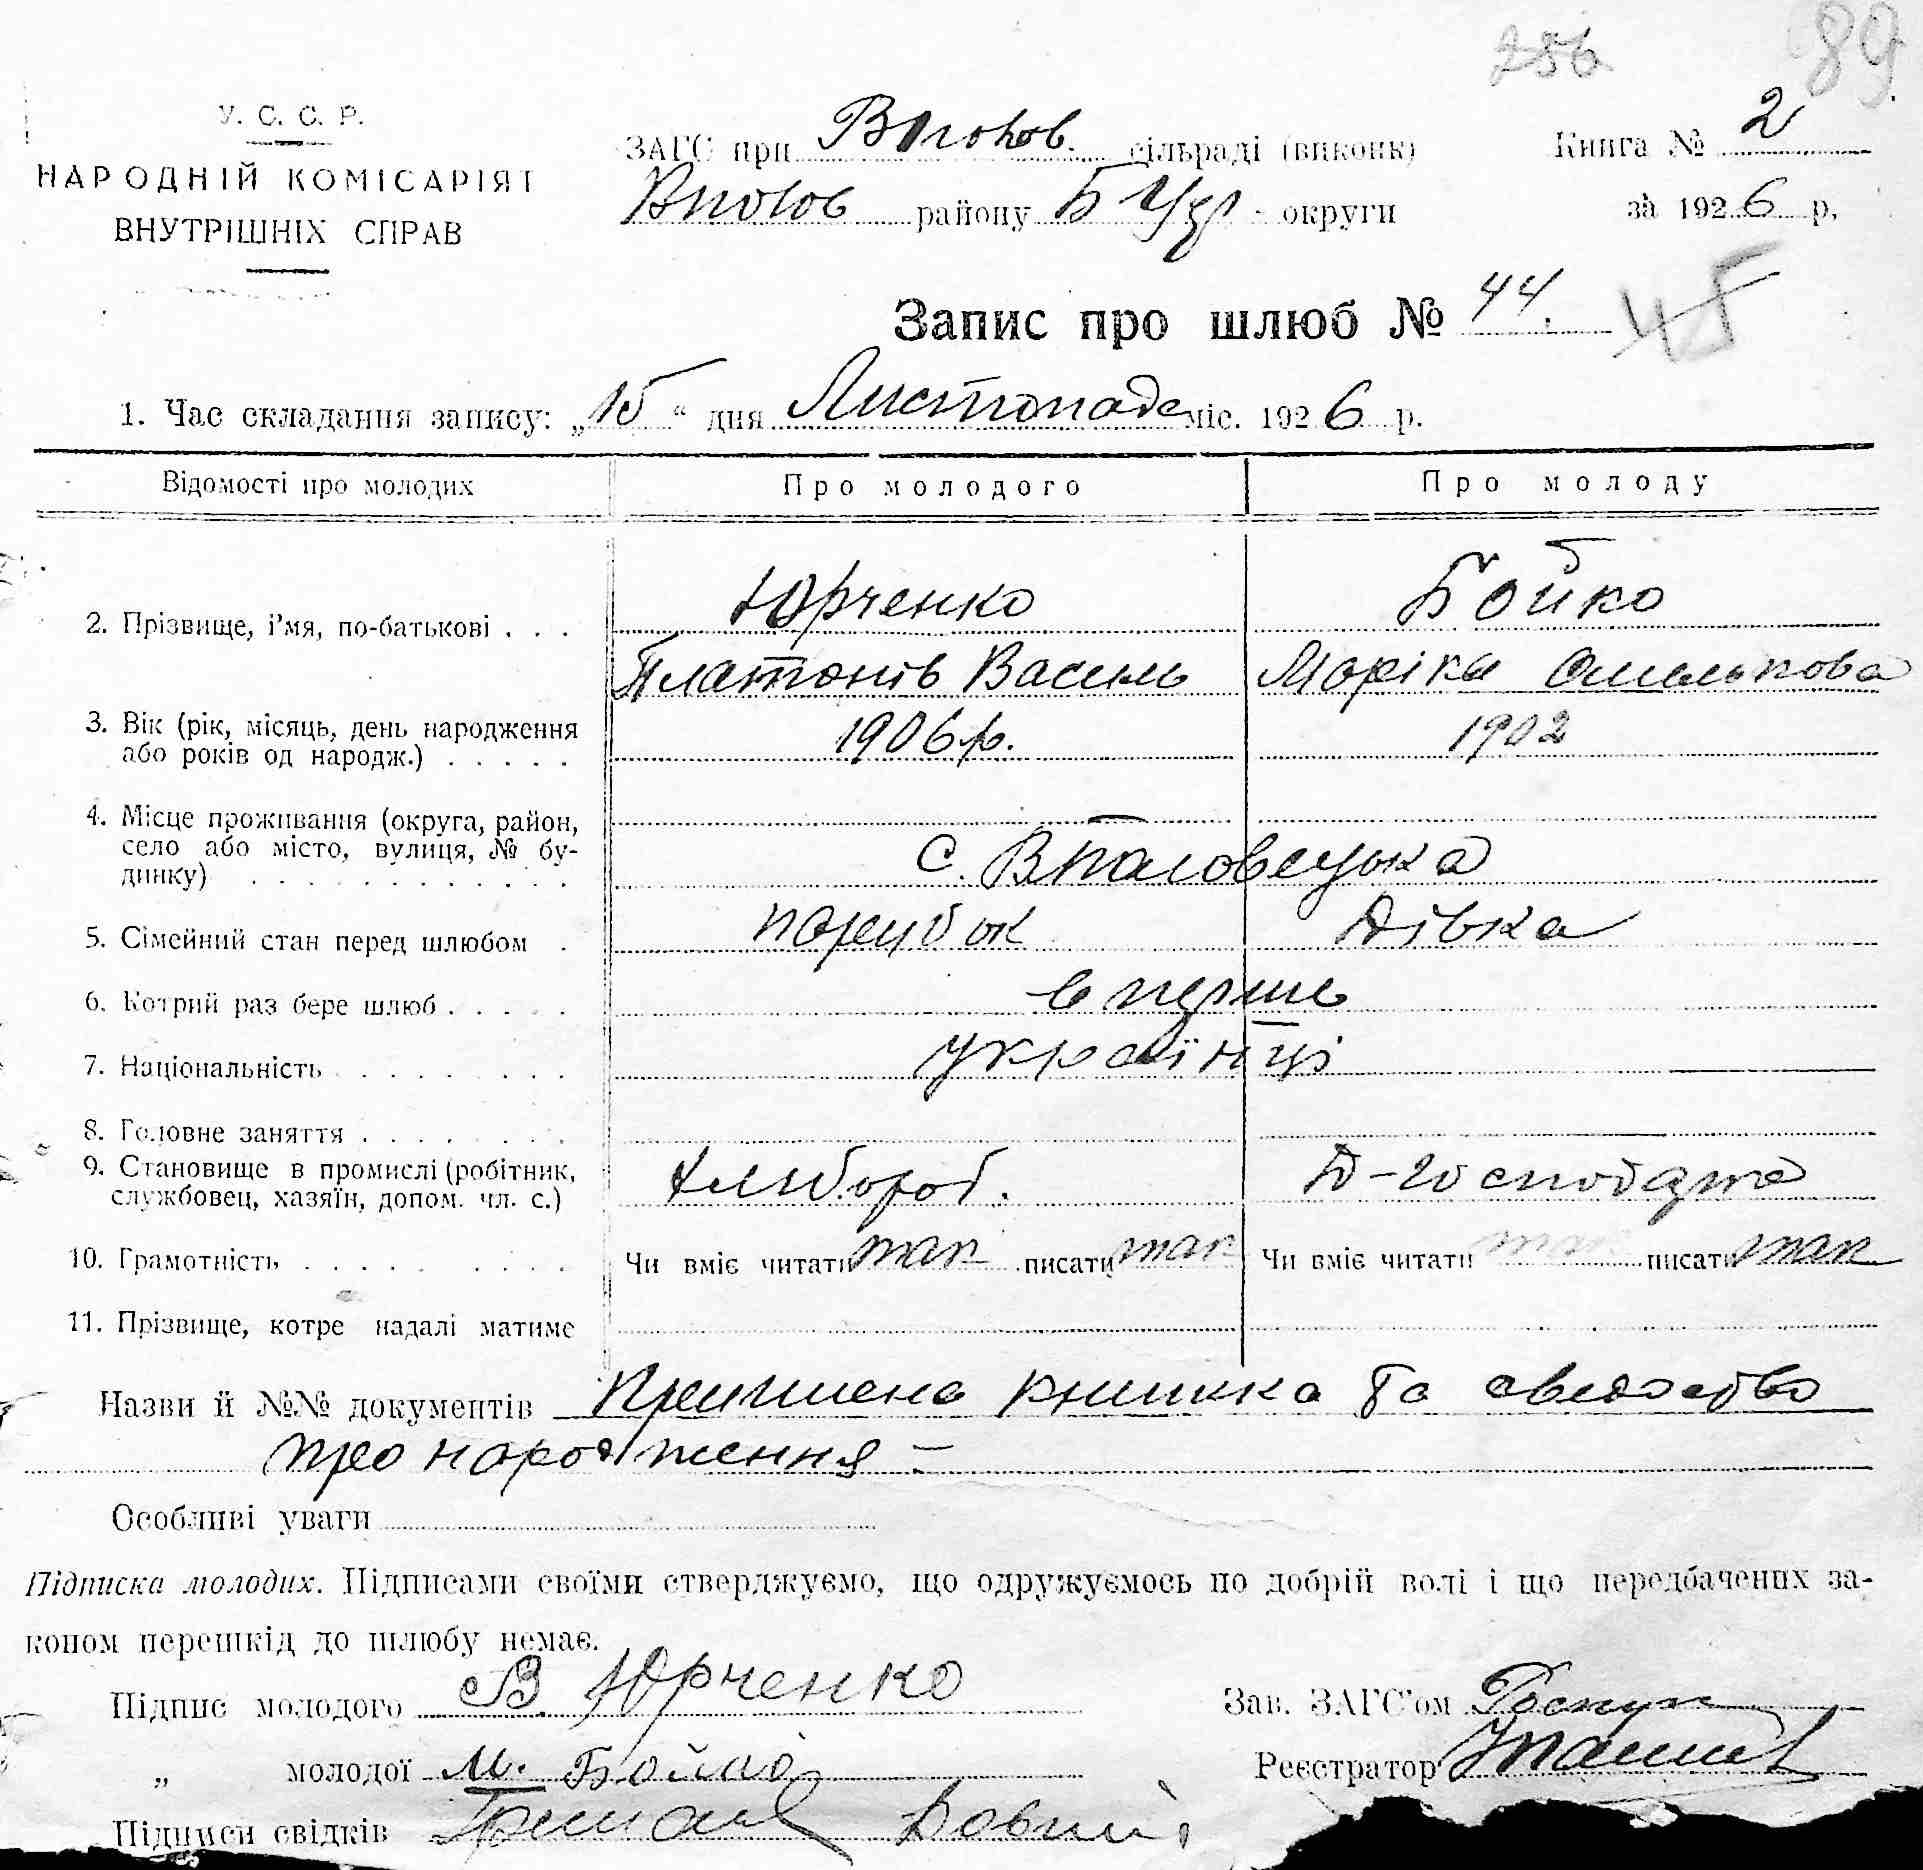 256 89
У. С. С. Р.
НАРОДНІЙ КОМІСАРІЯТ
ВНУТРІШНІХ СПРАВ
ЗАГС при сільраді (виконк)
Книга № 2
району Б Цер округи
за 1926 р.
Запис про шлюб № 44. 45
1. Час складання запису: „15“ дня Листопада міс. 1926 р.
Відомості про молодих Про молодого Про молоду
2. Прізвище, і'мя, по-батькові . . . Юрченко Бойко
Платонів Василь Маріка Омелькова
3. Вік (рік, місяць, день народження 1906 р. 1902
або років од народж.) . . . . .
4. Місце проживання (округа, район,
село або місто, вулиця, № бу- с.
динку) . . . . . . . . . . . .
5. Сімейний стан перед шлюбом . парубок дівка
6. Котрий раз бере шлюб . . . . . вперше
7. Національність . . . . . . . . українці
8. Головне заняття . . . . . . . .
9. Становище в промислі (робітник, хлібороб. Д-господарка
службовец, хазяїн, допом. чл. с.)
10. Грамотність . . . . . . . . . Чи вміє читати так писати так Чи вміє читати так писати так
11. Прізвище, котре надалі матиме
Назви й №№ документів книжка та сведоство
про народження –
Особливі уваги
Підписка молодих. Підписами своїми стверджуємо, що одружуємось по добрій волі і що передбачених за-
коном перешкід до шлюбу немає.
Підпис молодого В. Юрченко
Зав. ЗАГС'ом
„ молодої М. Бойко
Реєстратор
Підписи свідків